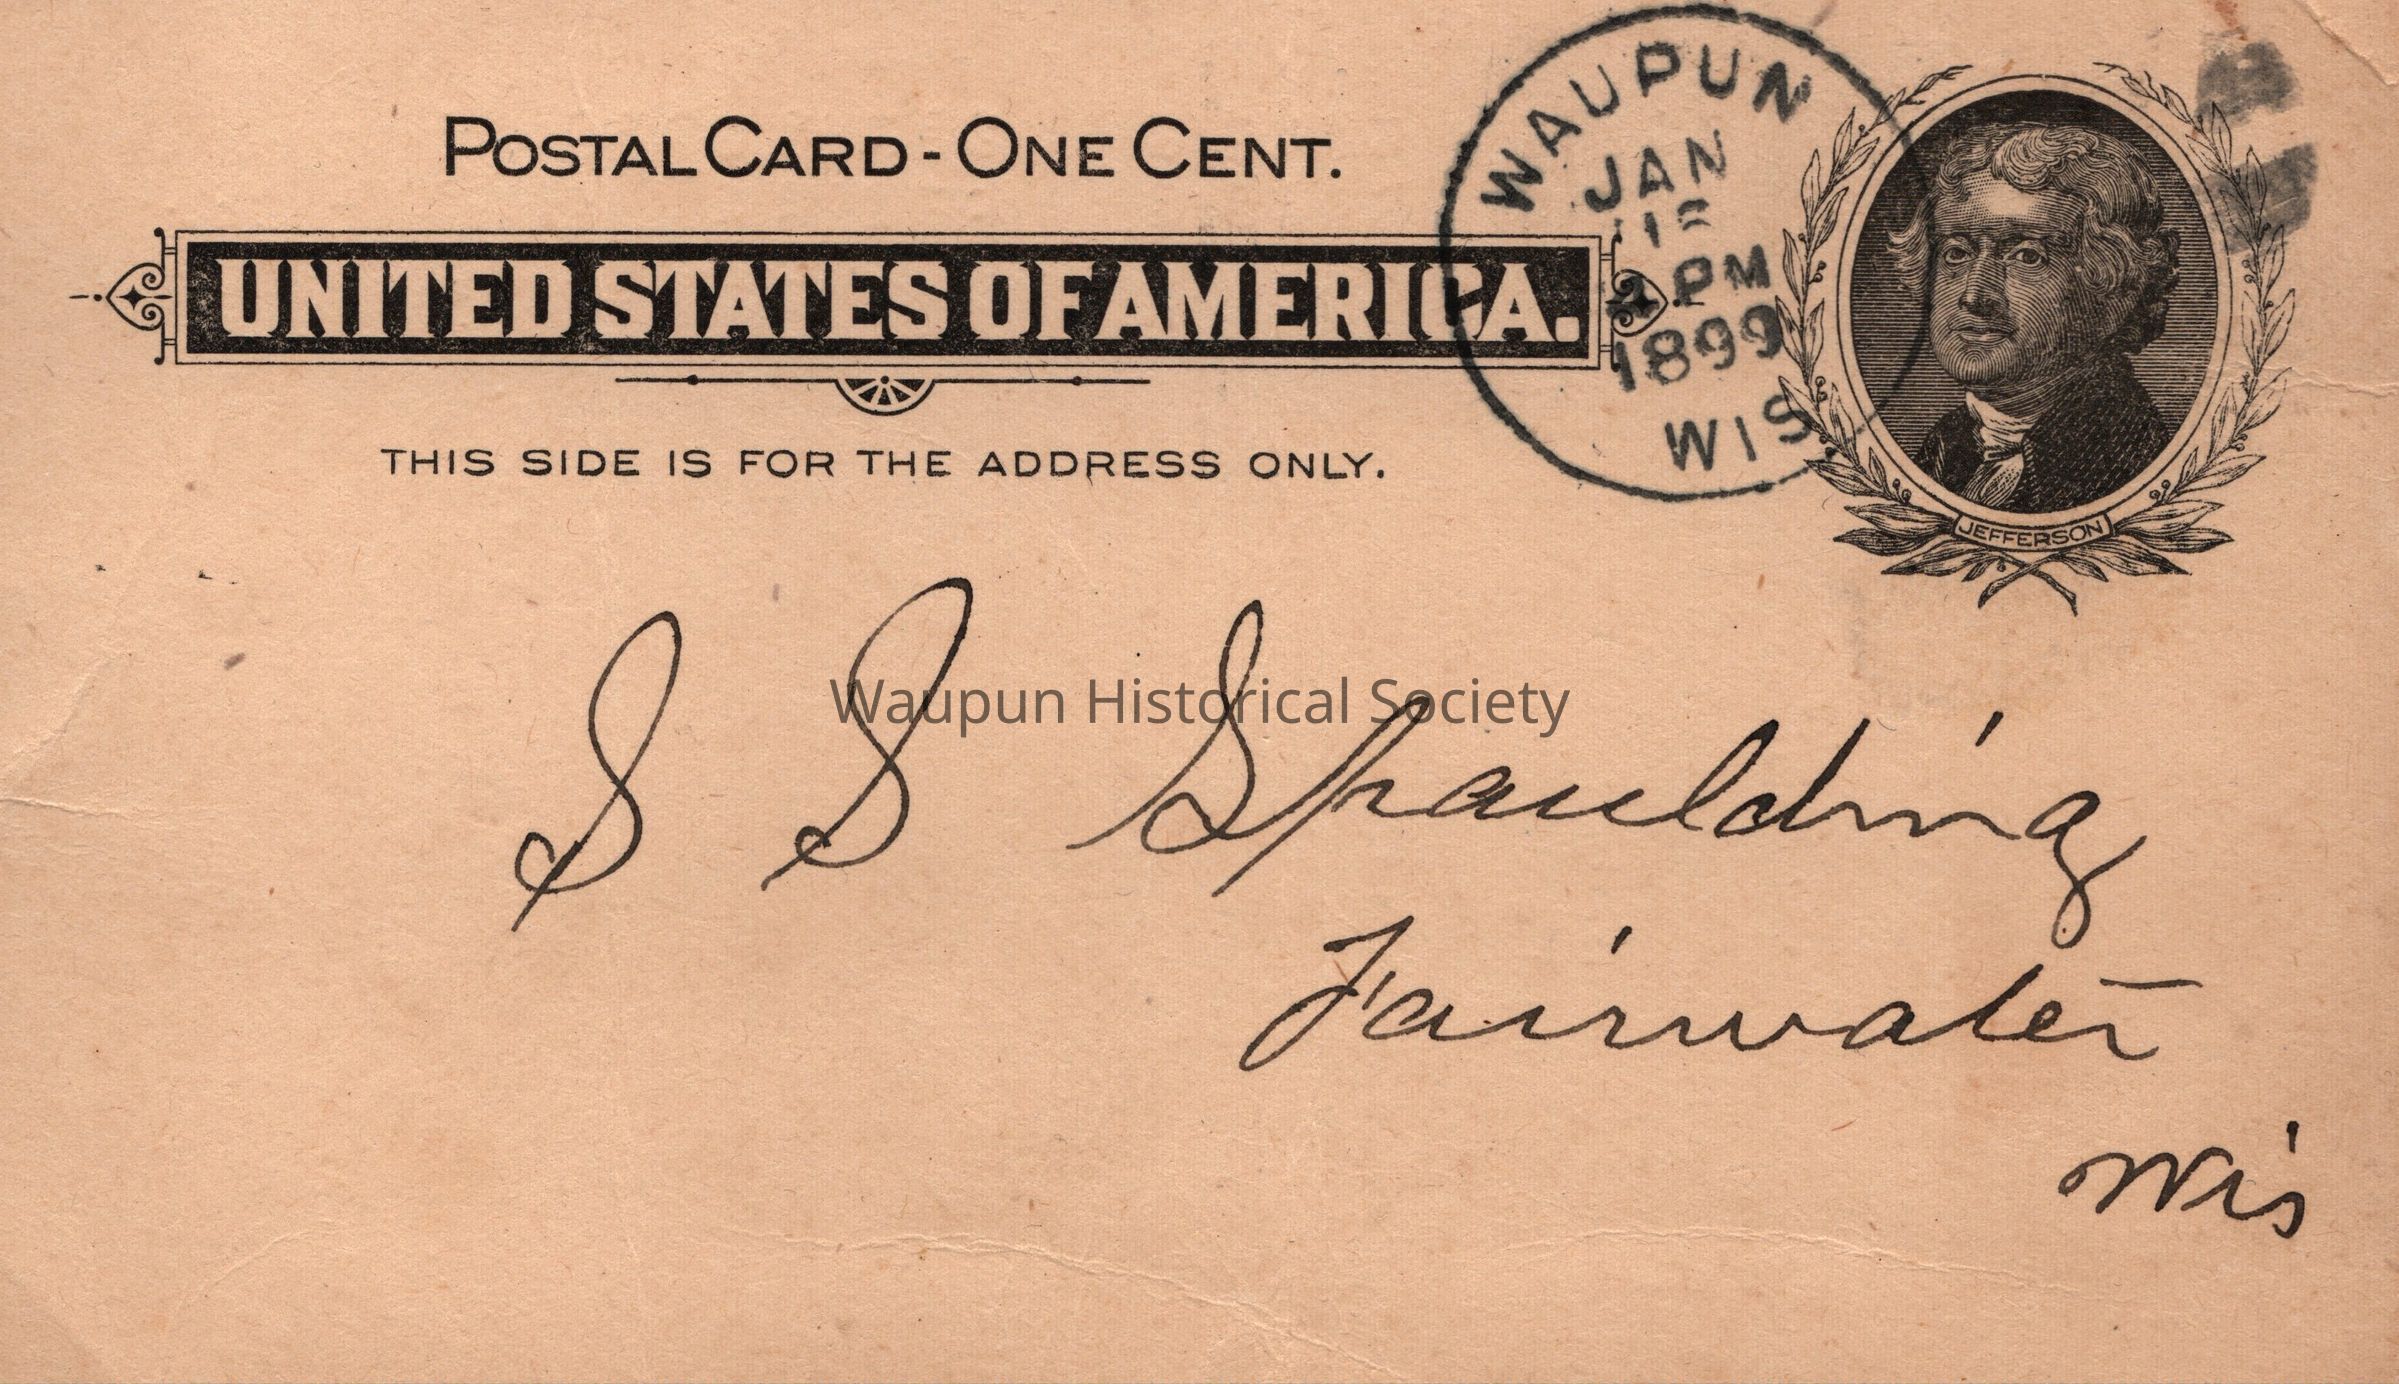 POSTAL CARD - ONE CENT.
UNITED STATES OF AMERICA.
THIS SIDE IS FOR THE ADDRESS ONLY.
WAUPUN
JAN
PM
1899
WIS
JEFFERSON
Waupun Historical Society
S S Spaulding
Fairwater
Wis